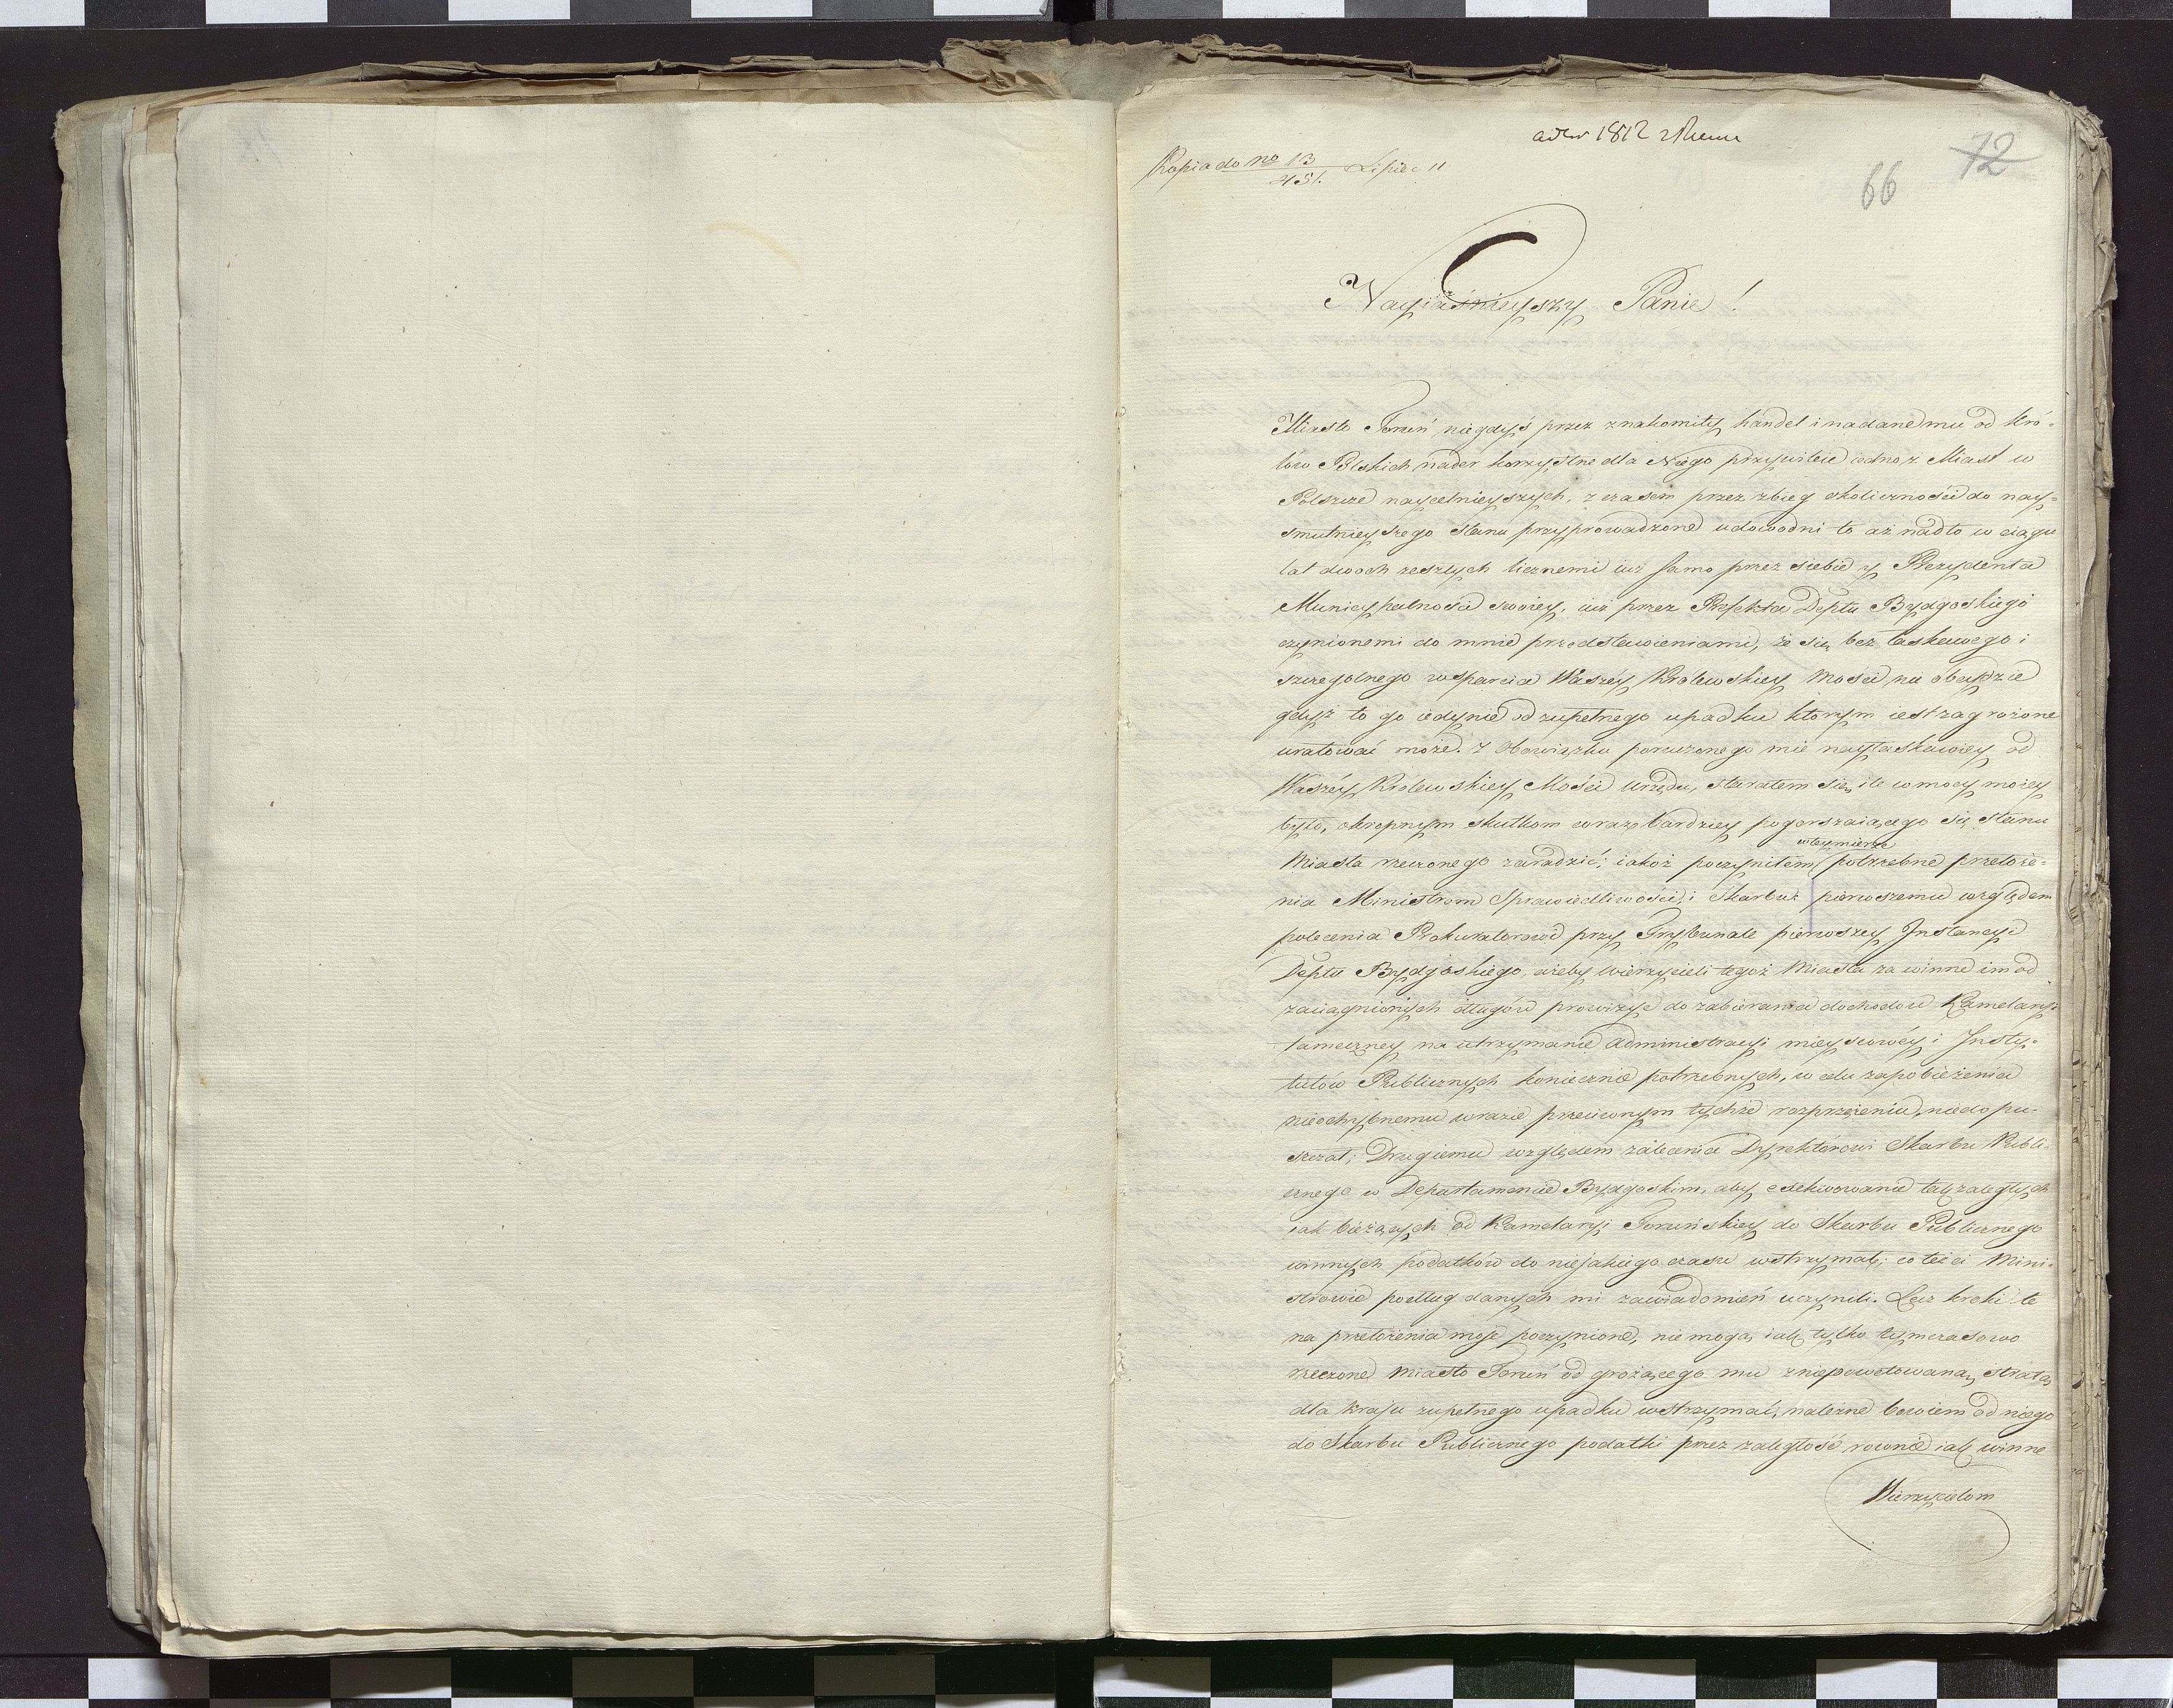 1812
72
Kopia do no 13/451. Lipiec 11
66
Nayiaśnieyszy Panie!
Miasto Toruń niegdyś przez znakomity handel i nadane mu od Kró-
lów Polskich nader korzystne dla Niego przywileie iedno z Miast w
Polszcze naycelnieyszych, z czasem przez zbieg okoliczności do nay-
smutnieyszego stanu przyprowadzone udowodni to aż nadto w ciągu
lat dwoch zeszłych licznemi iuż samo przez siebie y Prezydenta
Municypalności swoiey, iuż przez Prefekta Deptu Bydgoskiego
czynionemi do mnie przedstawieniami, że się bez łaskawego i
szczegolnego wsparcia Waszey Królewskiey Mości nie obeydzie
gdyż to go iedynie od zupełnego upadku ktorym iest zagrożone
uratować może. Z Obowiązku poruczonego mie nayłaskawiey od
Waszey Królewskiey Mości Urzędu, starałem się, ile w mocy moiey
było, okropnym skutkom coraz bardziey pogarszaiącego się stanu
w tey mierze
Miasta rzeczonego zaradzić; iakoż poczyniłem potrzebne przełoże-
nia Ministrom Sprawiedliwości, i Skarbu: pierwszemu względem
polecenia Prokuratorowi przy Trybunale pierwszey Instancyi
Deptu Bydgoskiego, ażeby wierzycieli tegoż Miasta za winne im od
zaciągnionych długów prowizye do zabierania dochodow Kamelaryi
tameczney na utrzymanie administracyi mieyscowey i Insty-
tutów Publicznych koniecznie potrzebnych, w celu zapobieżenia
nieochybnemu w razie przeciwnym tychże rozprzężeniu, niedopu-
szczał; Drugiemu względem zalecenia Dyrektorowi Skarbu Publi-
cznego w Departamencie Bydgoskim, aby exekwowanie tak zaległych
iak bieżących od Kamelaryi Toruńskiey do Skarbu Publicznego
winnych podatków do niejakiego czasu wstrzymał; co też ci Mini-
strowie podług danych mi zawiadomień uczynili. Lecz kroki te
na przełożenia moje poczynione, nie mogą iak tylko tymczasowo
rzeczone Miasto Toruń od grożącego mu z niepowetowaną stratą
dla Kraju zupełnego upadku wstrzymać, należne bowiem od niego
do Skarbu Publicznego podatki przez zaległość rownie iak winne
Wierzycielom